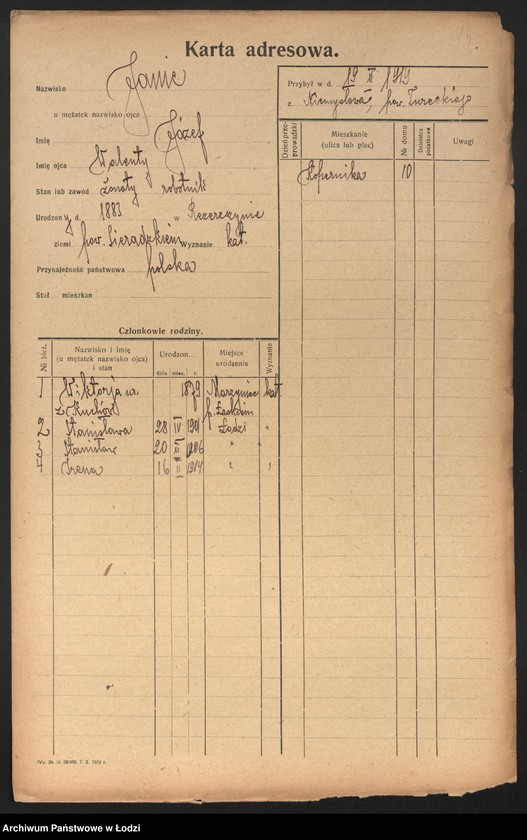 Karta adresowa.
Nazwisko Janic
u mężatek nazwisko ojca
Imię Józef
Imię ojca Walenty
Stan lub zawód żonaty robotnik
Urodzony d. 1883 w
ziemi pow. Sieradzkiem Wyznanie kat.
Przynależność państwowa polska
Stał. mieszkan
Przybył w d. 19 1919
z Niemysłowa, pow. Tureckiego
Dzień przeprowadzki
Mieszkanie (ulica lub plac)
№ domu
Dzielnica podatkowa
Uwagi
Kopernika 10
Członkowie rodziny.
№ bież.
Nazwisko i imię (u mężatek nazwisko ojca) i stan
Urodzon
dnia mies. r.
Miejsce urodzenia
Wyznanie
1 Wiktorja ur. 1879 kat
z Kuchów p. Łaskim
2 Stanisława 28 IV 1901 Łodzi "
3 Stanisław 20 1906 " "
4 Irena 16 II 1914 " "
Archiwum Państwowe w Łodzi